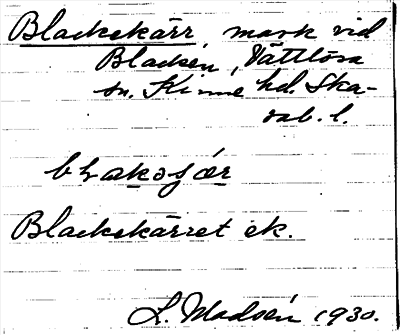 Blackekärr, mark vid
Blacken, Vättlösa
sn. Kinne hd. Ska-
rab. l.
Blackekärret ek.
L. Madsén 1930.